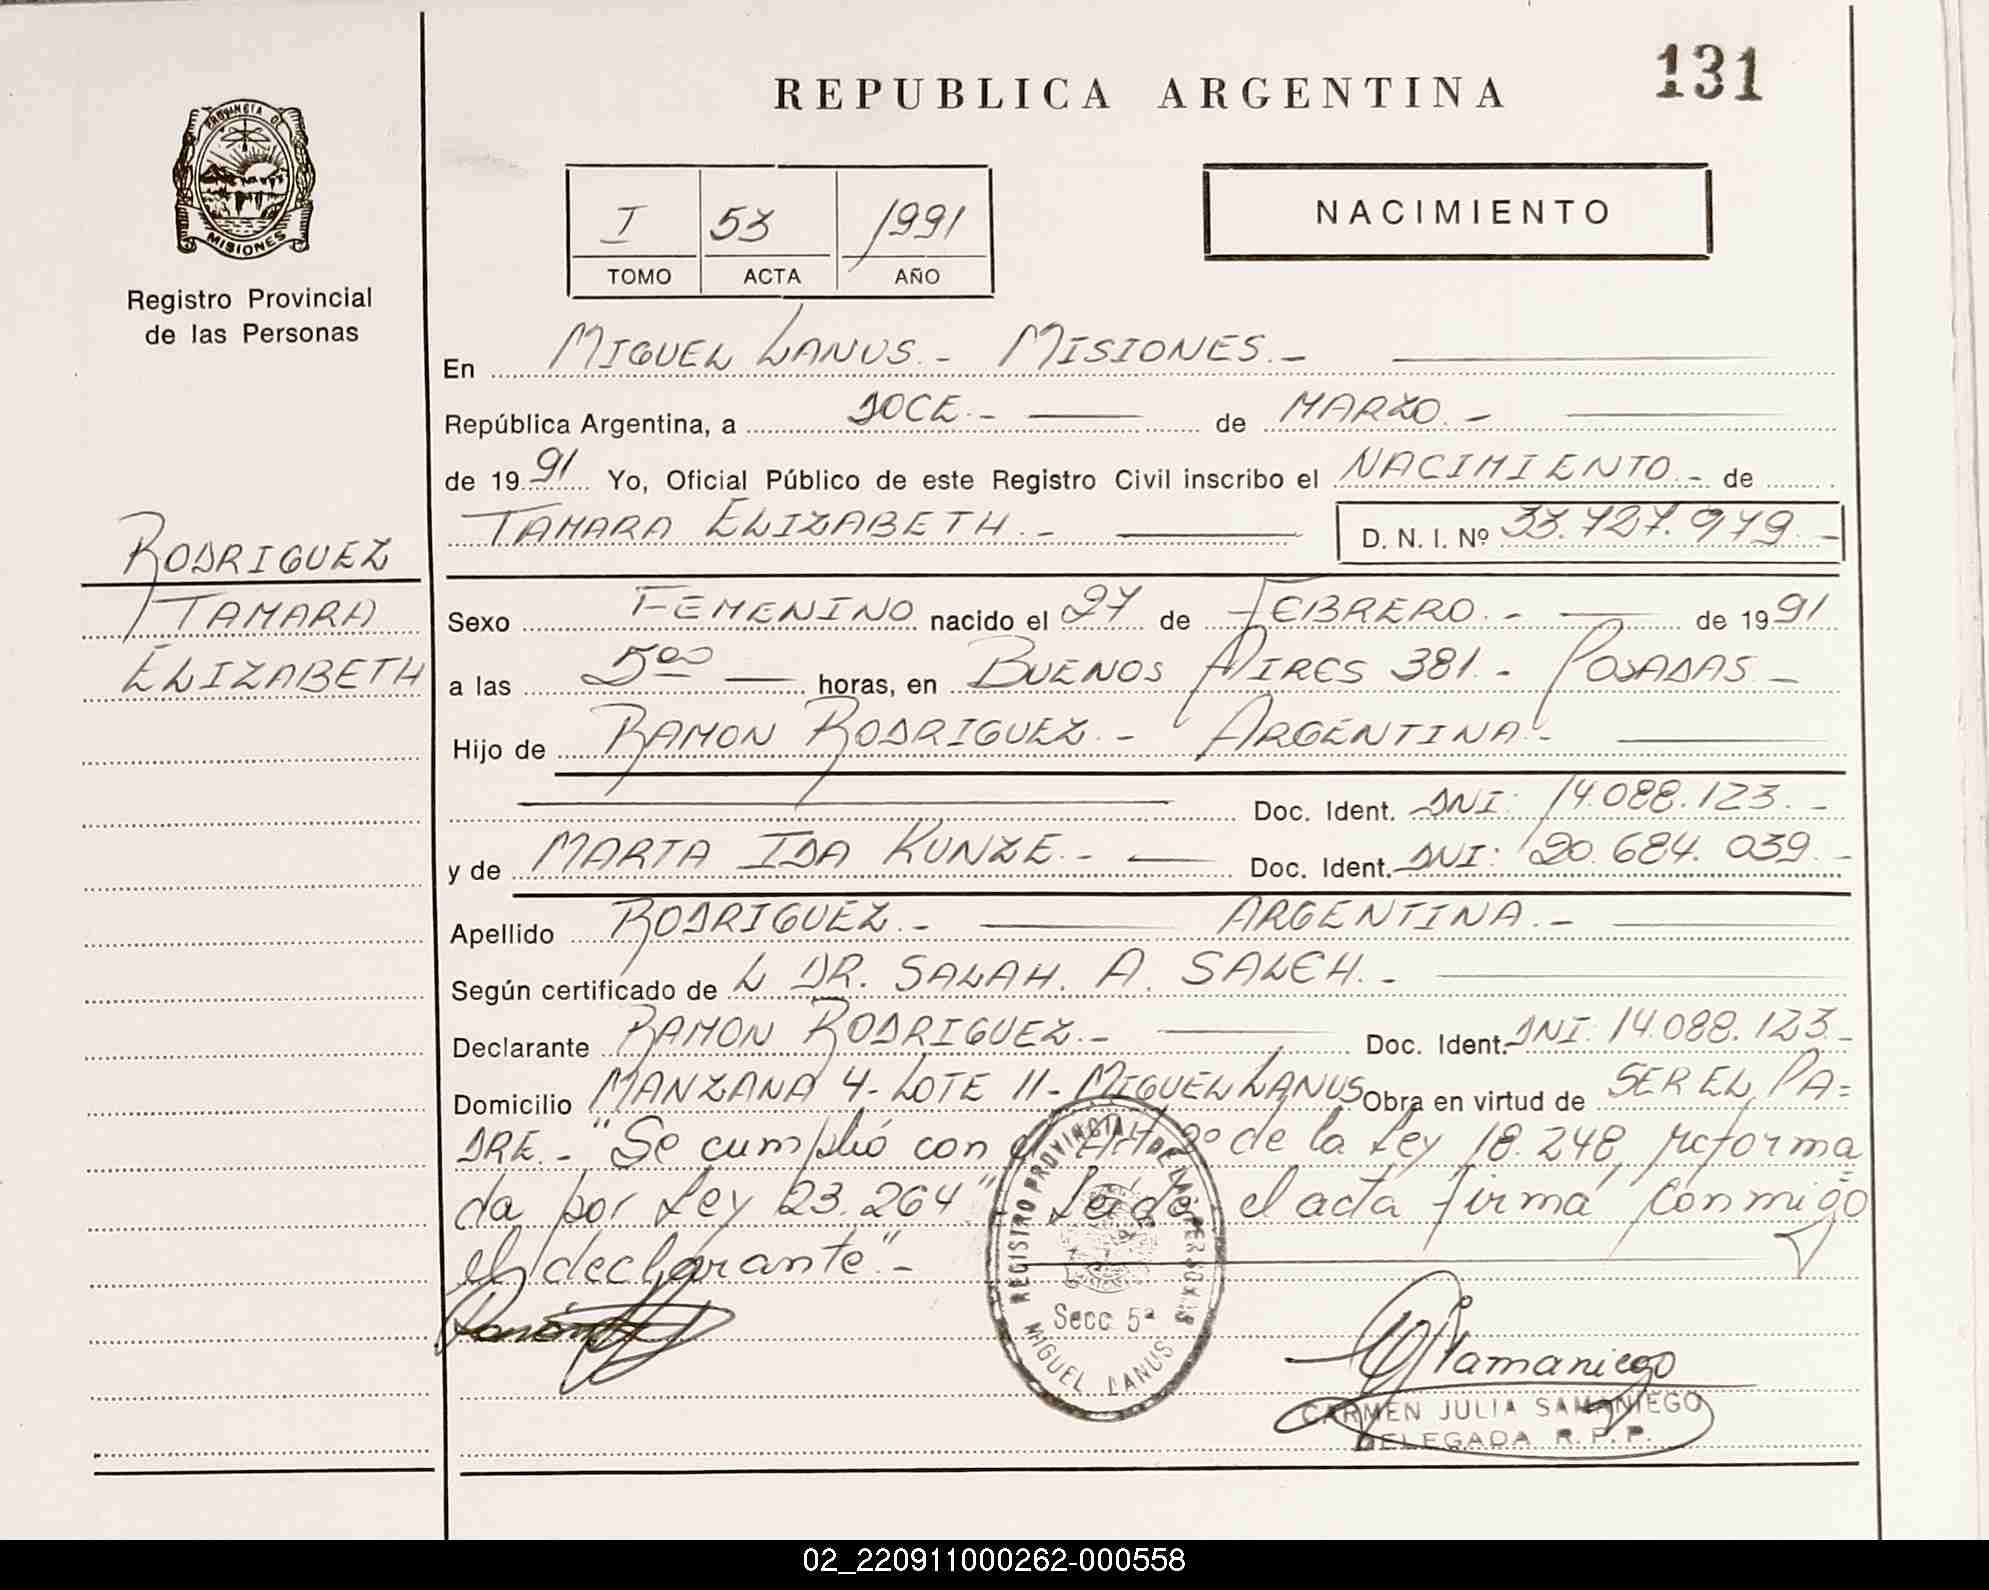 131
REPUBLICA ARGENTINA
PROVINCIA DE
MISIONES
Registro Provincial
de las Personas
I 53 1991
TOMO ACTA AÑO
NACIMIENTO
En MIGUEL LANUS.- MISIONES.-
República Argentina, a DOCE.- de MARZO.-
de 1991 Yo, Oficial Público de este Registro Civil inscribo el NACIMIENTO.- de
TAMARA ELIZABETH.- D. N. I. Nº 33.727.979.-
RODRIGUEZ
TAMARA
ELIZABETH
Sexo FEMENINO nacido el 27 de FEBRERO.- de 1991
a las 5 00 horas, en BUENOS AIRES 381.- POSADAS.-
Hijo de RAMON RODRIGUEZ.- ARGENTINA.-
Doc. Ident. DNI: 14.088.123.-
y de MARTA IDA KUNZE.- Doc. Ident. DNI: 20.684.039.-
Apellido RODRIGUEZ.- ARGENTINA.-
Según certificado de L DR. SALAH. A. SALEH.-
Declarante RAMON RODRIGUEZ.- Doc. Ident. DNI: 14.088.123.-
Domicilio MANZANA 4- LOTE 11- MIGUEL LANUS Obra en virtud de SER EL PA=
DRE.- "Se cumplió con el Art 2º de la Ley 18.248, reforma=
da por Ley 23.264." Leida el acta firma conmigo
el declarante".-
REGISTRO PROVINCIAL DE LAS PERSONAS
Secc. 5ª
MIGUEL LANUS
Samaniego
CARMEN JULIA SAMANIEGO
DELEGADA R. P. P.
02_220911000262-000558